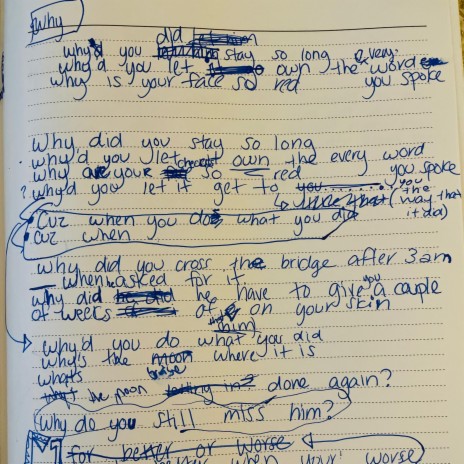 Why
did
why'd you stay so long
why'd you let own the every word
why is your face so red you spoke
Why did you stay so long
why'd you let own the every word
why are your cheeks so red you spoke
? why'd you let it get to you
(way that it did)
• Cuz when you do what you did
• cuz when
why did you cross the bridge after 3am
when asked for it
why did he have to give you a couple
of weeks of on your skin
him
why'd you do what you did
why's the moon where it is
what's
bruise
the moon done again?
Why do you still miss him?
for better or worse
when your worse